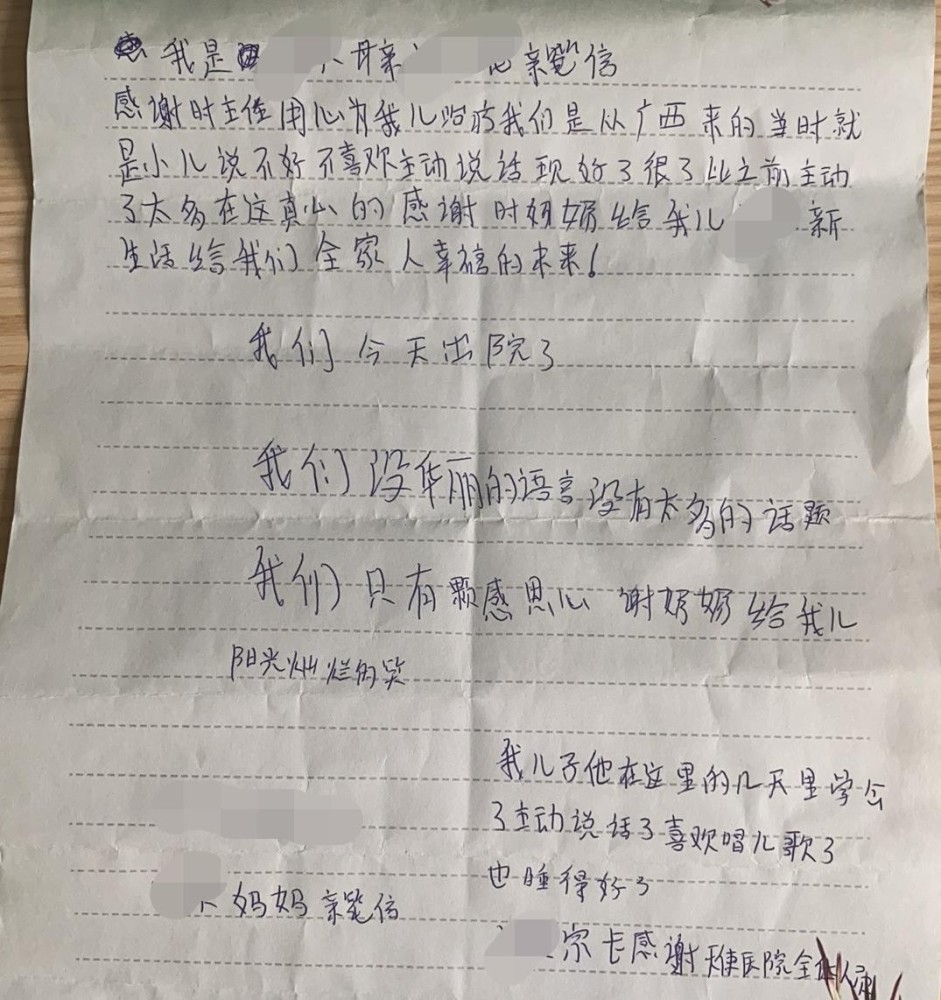 我是 母亲 亲笔信
感谢时主任用心为我儿治疗我们是从广西来的当时就
是小儿说不好不喜欢主动说话现好了很了比之前主动
了太多在这真心的感谢时奶奶给我儿 新
生活给我们全家人幸福的未来!
我们今天出院了
我们没华丽的语言没有太多的话题
我们只有颗感恩心 谢奶奶给我儿
阳光灿烂的笑
我儿子他在这里的几天里学会
了主动说话了喜欢唱儿歌了
也睡得好了
妈妈亲笔信
家长感谢天使医院全体